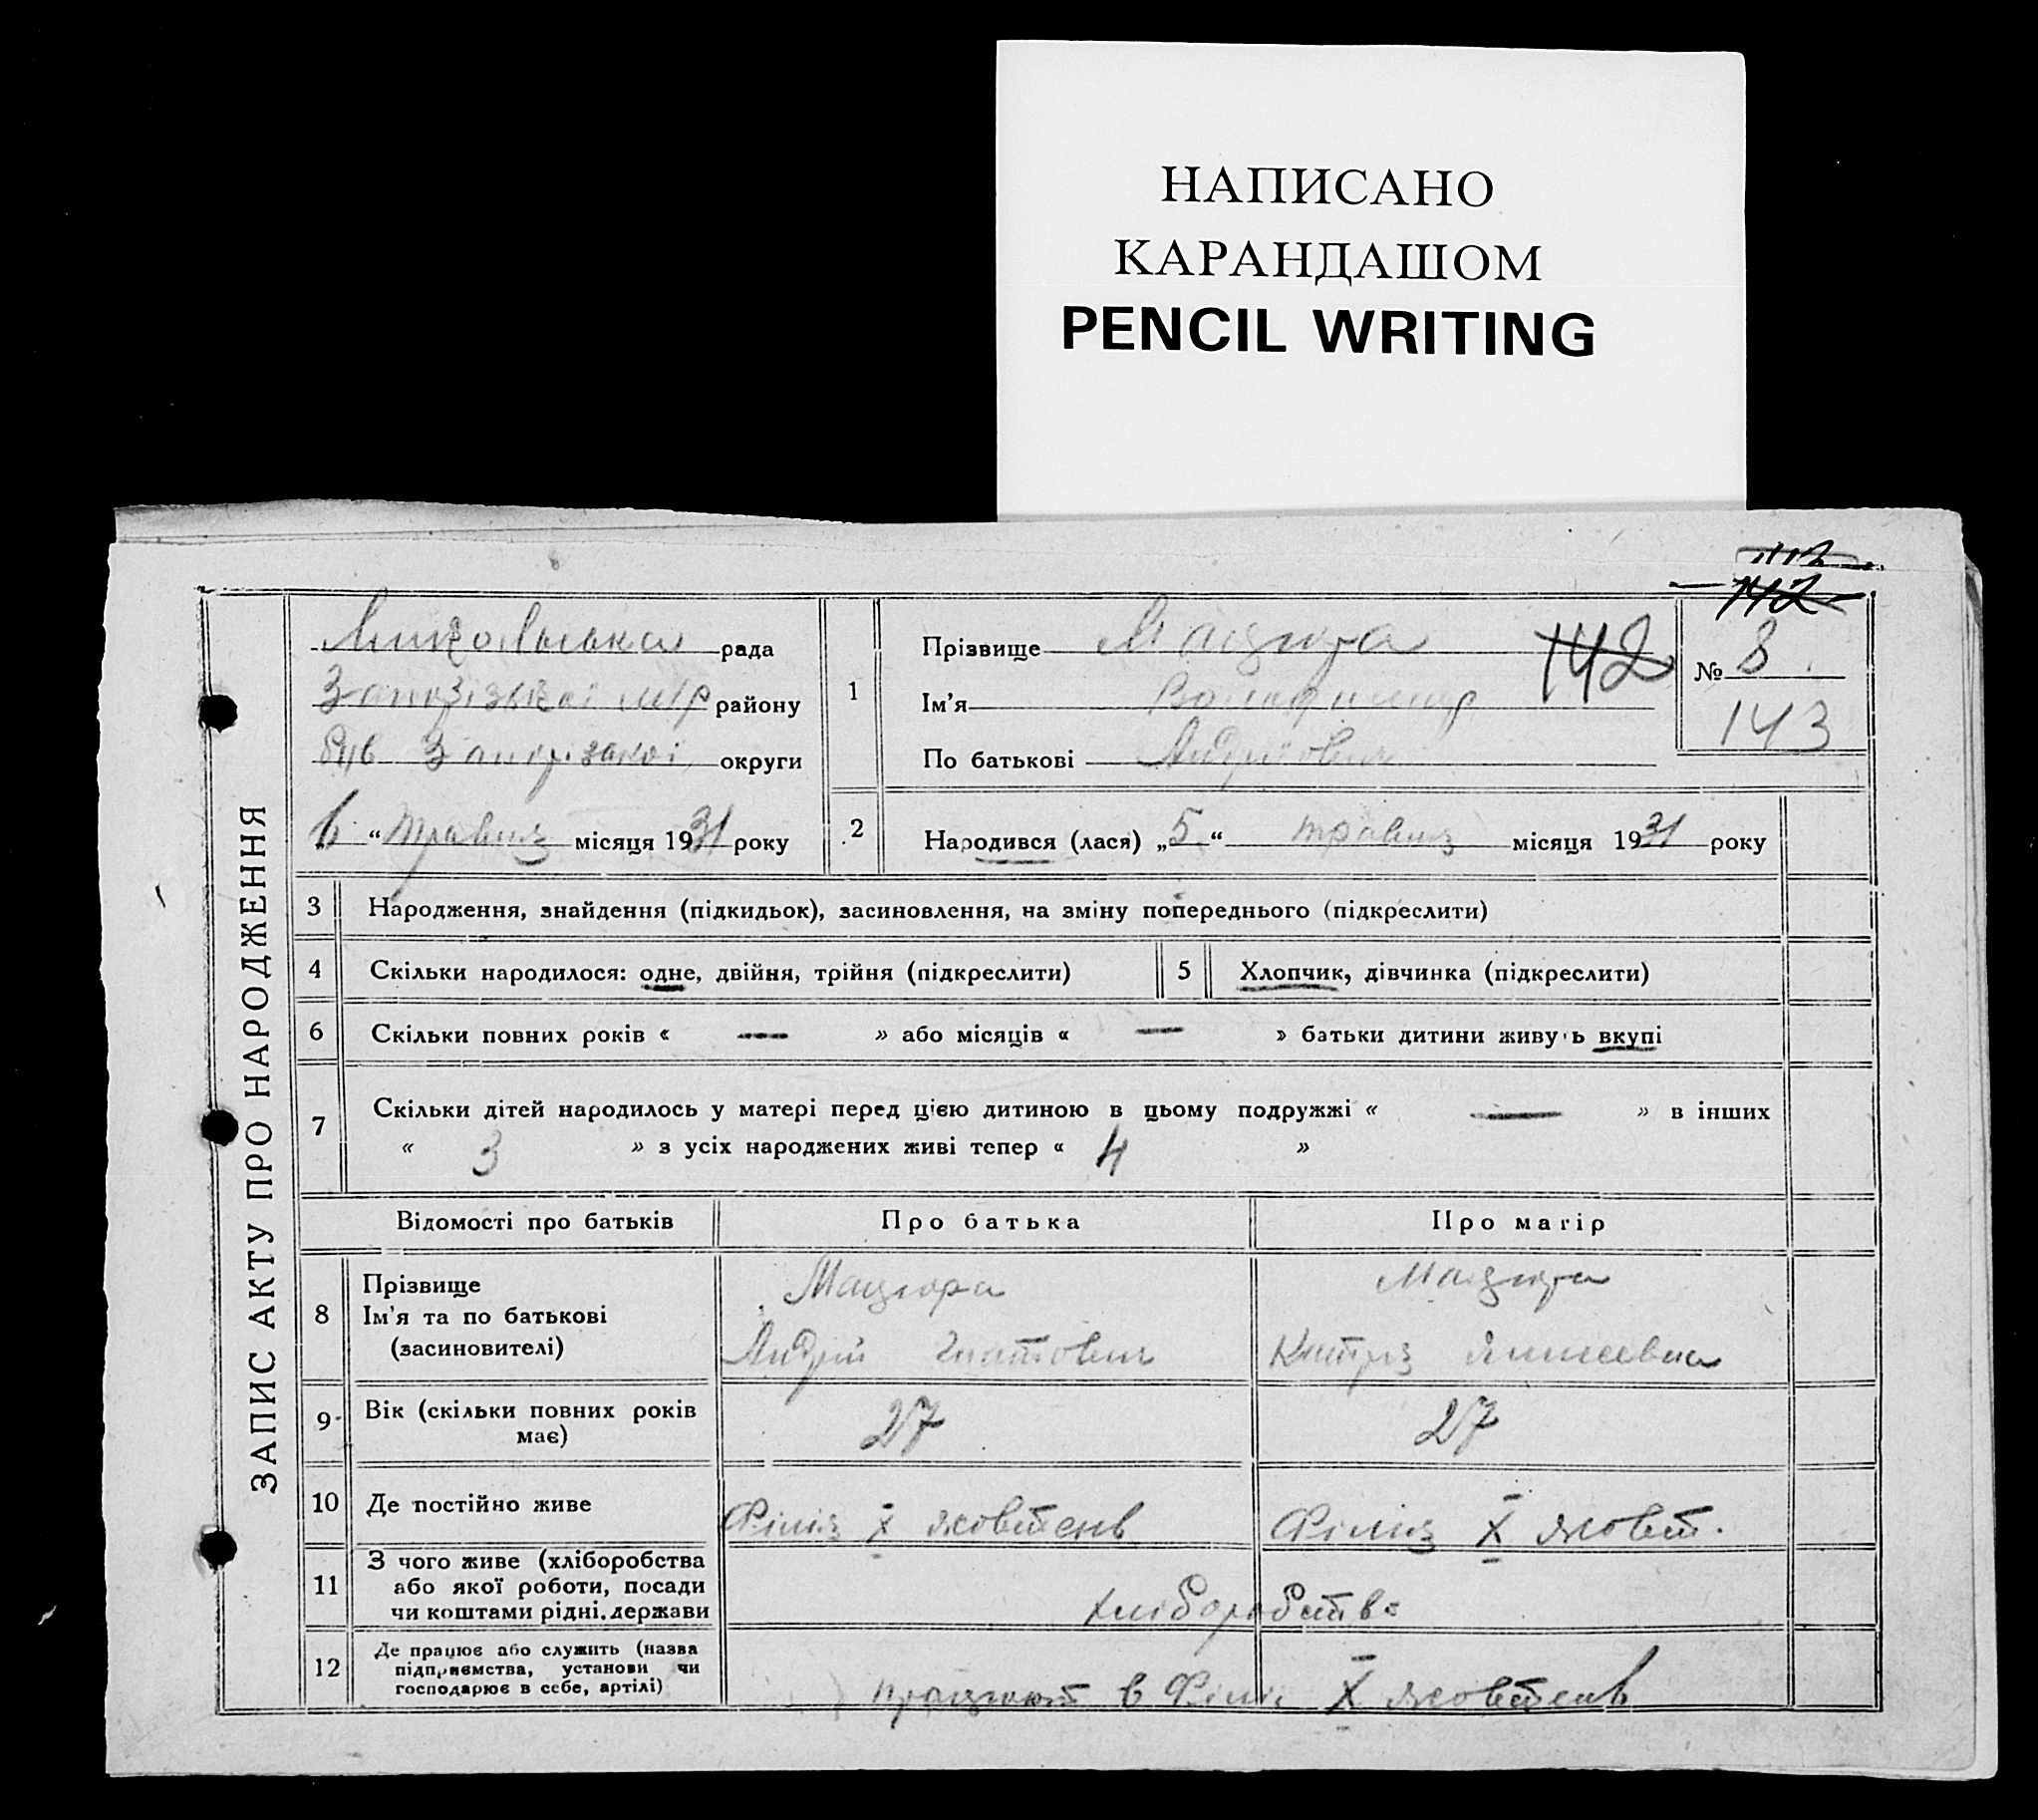 НАПИСАНО
КАРАНДАШОМ
PENCIL WRITING
112
142
ЗАПИС АКТУ ПРО НАРОДЖЕННЯ
рада
Запорізької м/р району
був Запорізької округи
6 “ травня місяця 1931 року
1
Прізвище Мацюра 142
Ім'я Володимир
По батькові Андрійович
№ 8
143
2 Народився (лася) „5“ травня місяця 1931 року
3 Народження, знайдення (підкидьок), засиновлення, на зміну попереднього (підкреслити)
4 Скільки народилося: одне, двійня, трійня (підкреслити) 5 Хлопчик, дівчинка (підкреслити)
6 Скільки повних років « — » або місяців « — » батьки дитини живуть вкупі
7 Скільки дітей народилось у матері перед цією дитиною в цьому подружжі « — » в інших
« 3 » з усіх народжених живі тепер « 4 »
Відомості про батьків Про батька Про матір
8 Прізвище Мацюра Мацюра
Ім'я та по батькові
(засиновителі) Андрій Гнатович Катря
9 Вік (скільки повних років має) 27 27
10 Де постійно живе Філія X жовтень Філія X жовт.
11 З чого живе (хліборобства
або якої роботи, посади
чи коштами рідні, держави хліборобства
12 Де працює або служить (назва
підприємства, установи чи
господарює в себе, артілі) працюют в Філії X жовтень